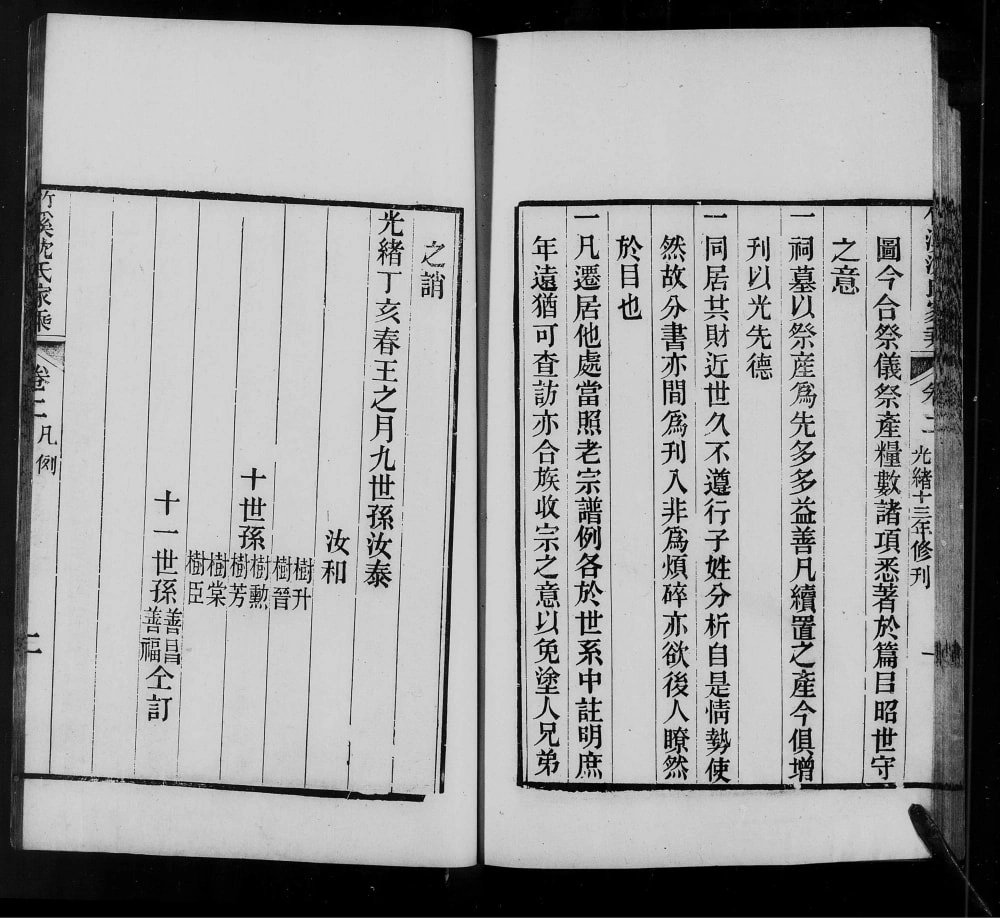 圖今合祭儀祭產糧數諸項悉著於篇目昭世守
之意
一祠墓以祭產爲先多多益善凡續置之產今俱增
刊以光先德
一同居其財近世久不遵行子姓分析自是情勢使
然故分書亦間爲刊入非爲煩碎亦欲後人瞭然
於目也
一凡遷居他處當照老宗譜例各於世系中註明庶
年遠猶可查訪亦合族收宗之意以免塗人兄弟
卷二 光緒十三年修刊 一
之誚
光緒丁亥春王之月九世孫汝泰
汝和
樹升
樹晉
十世孫樹勳
樹芳
樹棠
樹臣
十一世孫善昌
善福仝訂
竹溪沈氏家乘 卷二 凡例 二